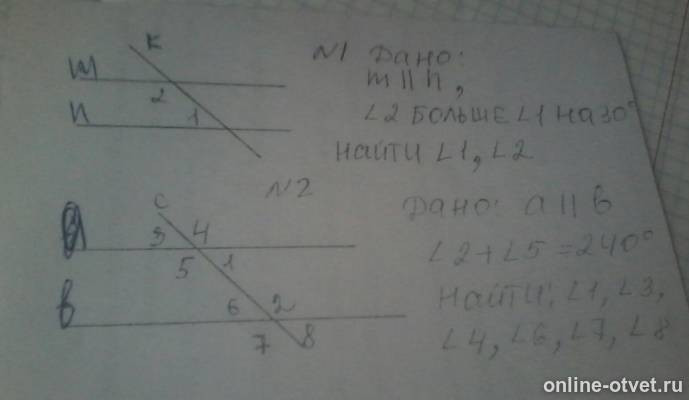 K
m
2
n
1
N1 Дано:
m || n,
∠2 БОЛЬШЕ ∠1 НА 30°
НАЙТИ ∠1, ∠2
N2
c
a
3 4
5 1
в
6 2
7 8
Дано: a || в
∠2+∠5=240°
НАЙТИ: ∠1, ∠3,
∠4, ∠6, ∠7, ∠8
online-otvet.ru